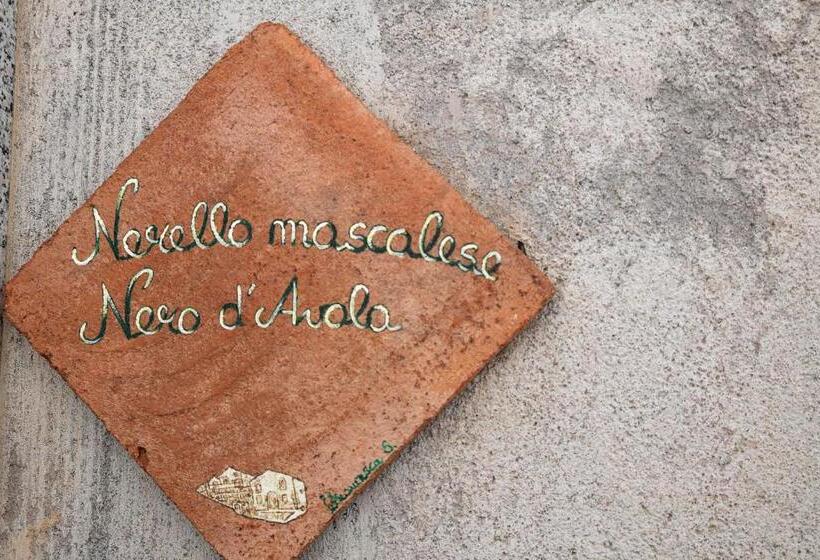 Nerello mascalese
Nero d'Avola
Francesca G.